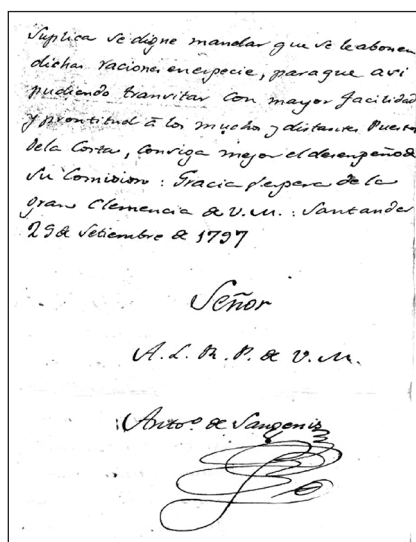 Suplica se digne mandar que se le abonen
dichas raciones en especie, para que asi
pudiendo transitar con mayor facilidad
y prontitud à los muchos y distantes Puestos
de la Costa, consiga mejor el desempeño de
su Comision: Gracia q.e espera de la
gran Clemencia de V.M.: Santander
29 de Setiembre de 1797
Señor
A. L. R. P. de V. M.
Anto.o de Sangenis